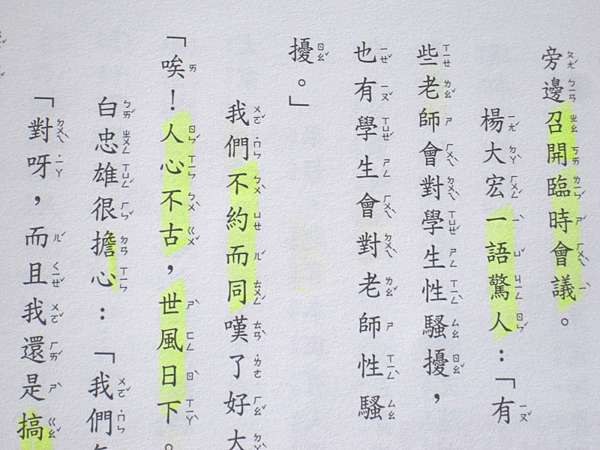 旁邊召開臨時會議。
楊大宏一語驚人：「有
些老師會對學生性騷擾，
也有學生會對老師性騷
擾。」
我們不約而同嘆了好大
「唉！人心不古，世風日下。
白忠雄很擔心：「我們
「對呀，而且我還是搞